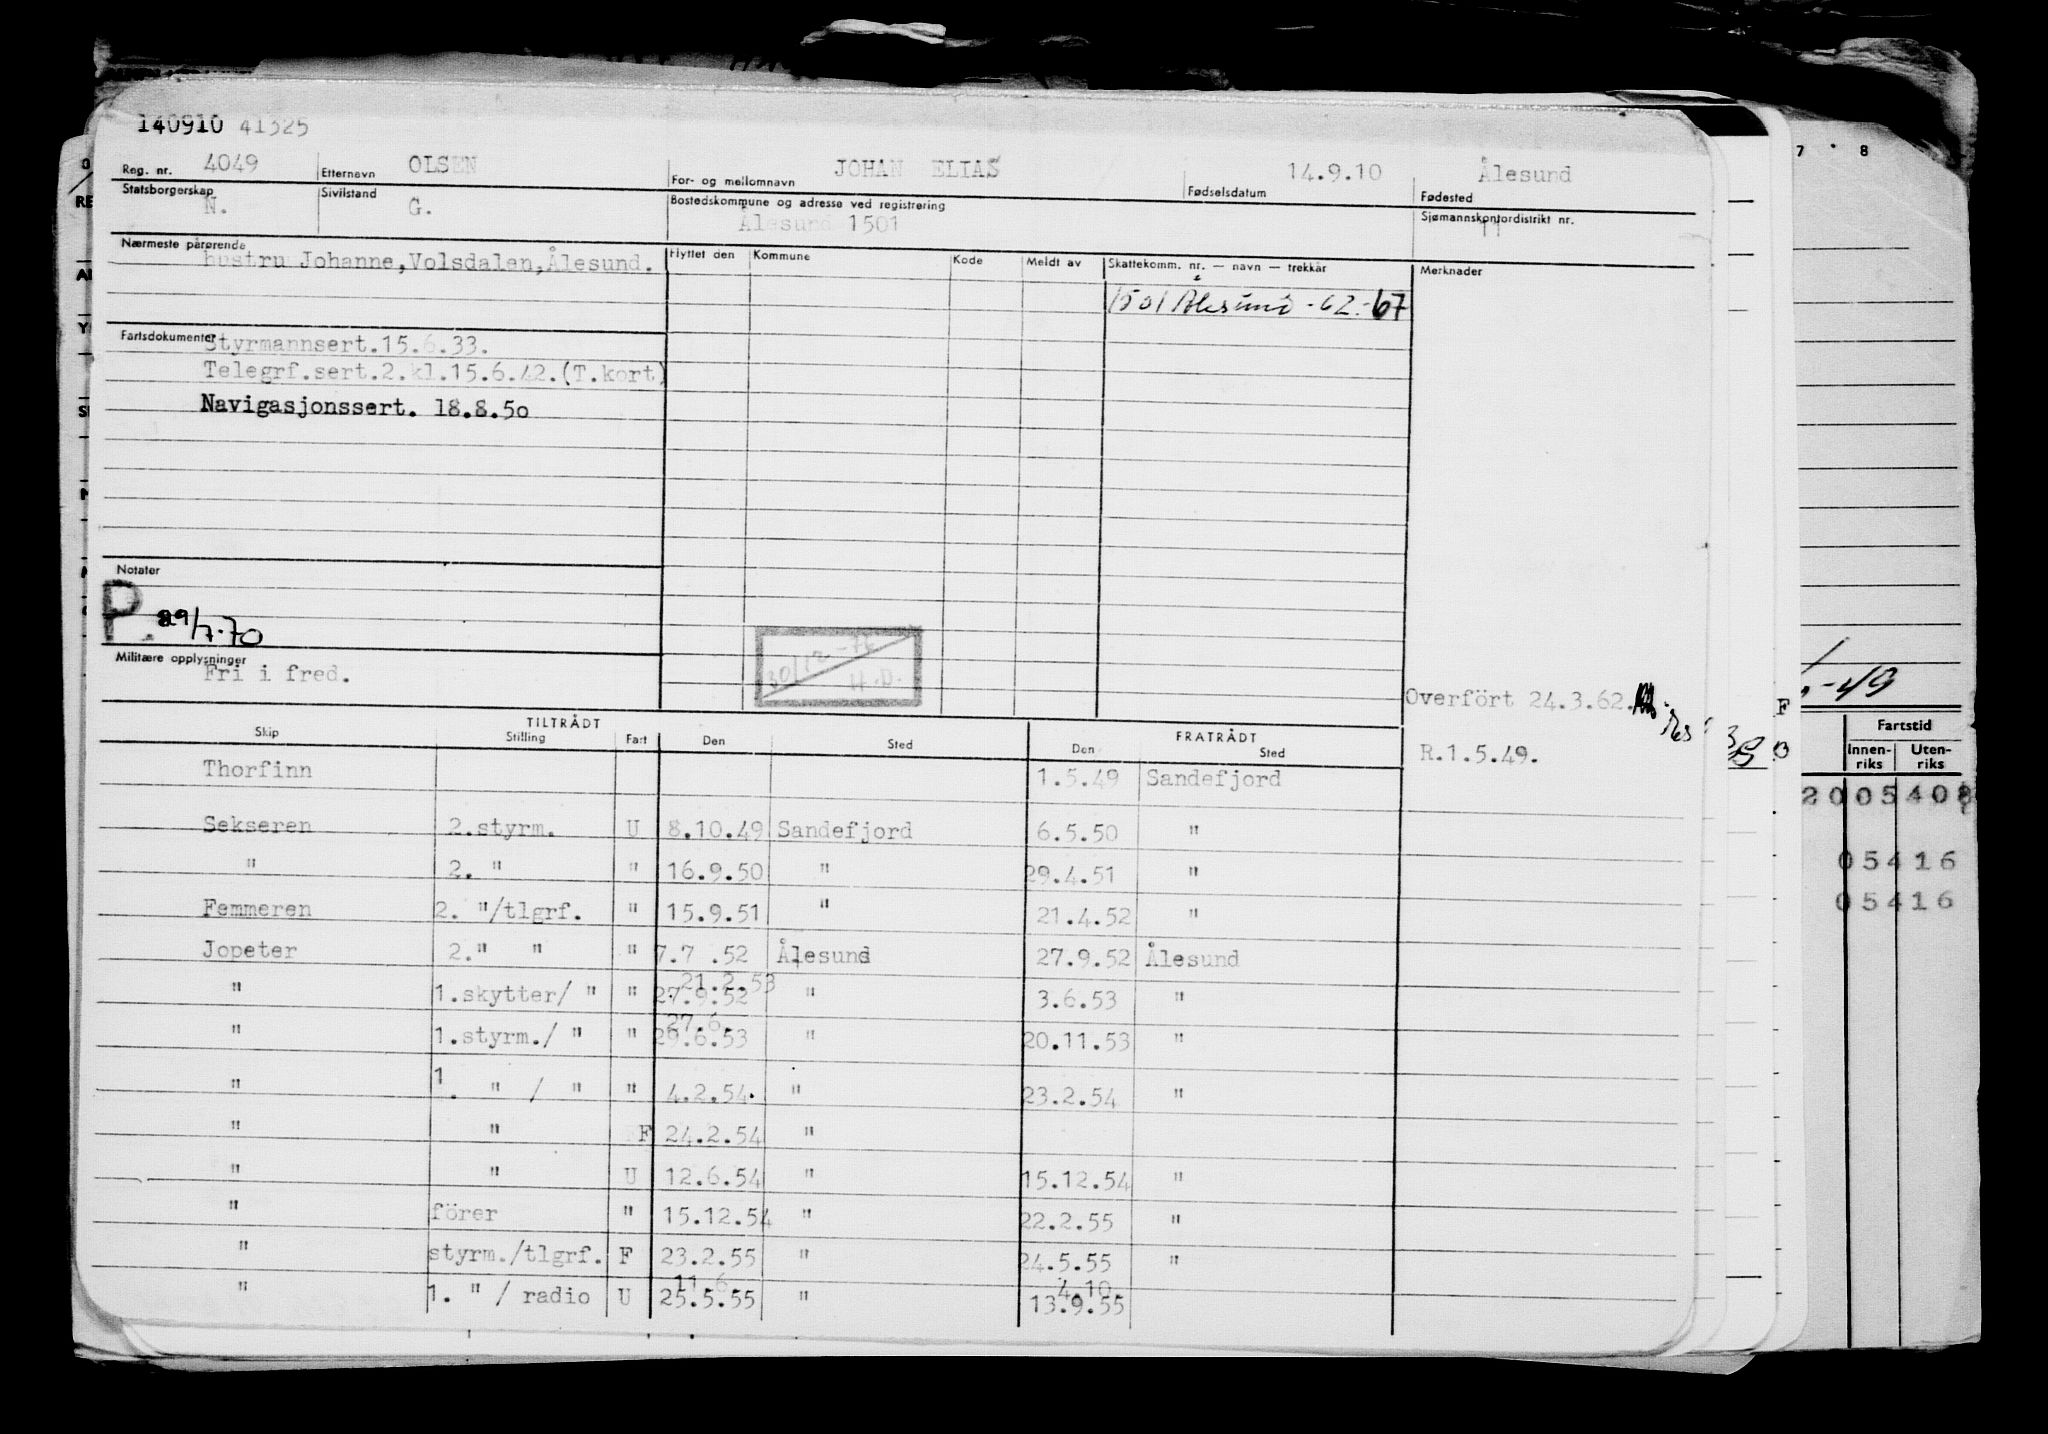 140910 41325
Reg. nr. 4049 Etternavn OLSEN For- og mellomnavn JOHAN ELIAS Fødselsdatum 14.9.10 Fødested Ålesund
Statsborgerskap N. Sivilstand G. Bostedskommune og adresse ved registrering Ålesund 1501 Sjømannskontordistrikt nr. 11
Nærmeste pårørende hustru Johanne,Volsdalen,Ålesund.
Flyttet den Kommune Kode Meldt av Skattekomm. nr. — navn — trekkår Merknader
1501 Ålesund - 62.-67
Fartsdokumenter Styrmannsert.15.6.33.
Telegrf.sert.2.kl.15.6.42.(T.kort)
Navigasjonssert. 18.8.50
Notater
P. 29/7.70
Militære opplysninger Fri i fred.
30/12-76
H.D.
Overført 24.3.62.
R.1.5.49.
TILTRÅDT FRATRÅDT
Skip Stilling Fart Den Sted Den Sted
Thorfinn 1.5.49 Sandefjord
Sekseren 2.styrm. U 8.10.49 Sandefjord 6.5.50 "
" 2. " " 16.9.50 " 29.4.51 "
Femmeren 2. "/tlgrf. " 15.9.51 " 21.4.52 "
Jopeter 2." " " 7.7 .52 Ålesund 27.9.52 Ålesund
21.2.53
" 1.skytter/ " " 27.9.52 " 3.6.53 "
27.6.
" 1.styrm./ " " 29.6.53 " 20.11.53 "
" 1. " / " " 4.2.54. " 23.2.54 "
" " F 24.2.54 "
" " U 12.6.54 " 15.12.54 "
" förer " 15.12.54 " 22.2.55 "
" styrm./tlgrf. F 23.2.55 " 24.5.55 "
11.6. 4.10.
" 1. " / radio U 25.5.55 " 13.9.55
7 8
-49
F
Fartstid
Innen-riks Uten-riks
2005408
05416
05416